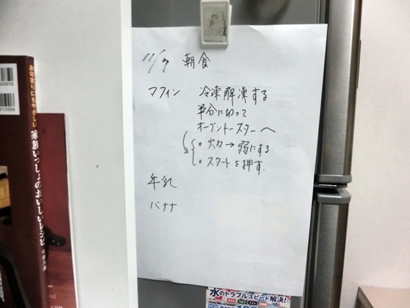 11/7 朝食
マフィン 冷凍解凍する
半分に切って
オーブントースターへ
・火力→弱にする
・スタートを押す.
牛乳
バナナ
家族いっしょのおいしいレシピ
水のトラブルスピード解決!!